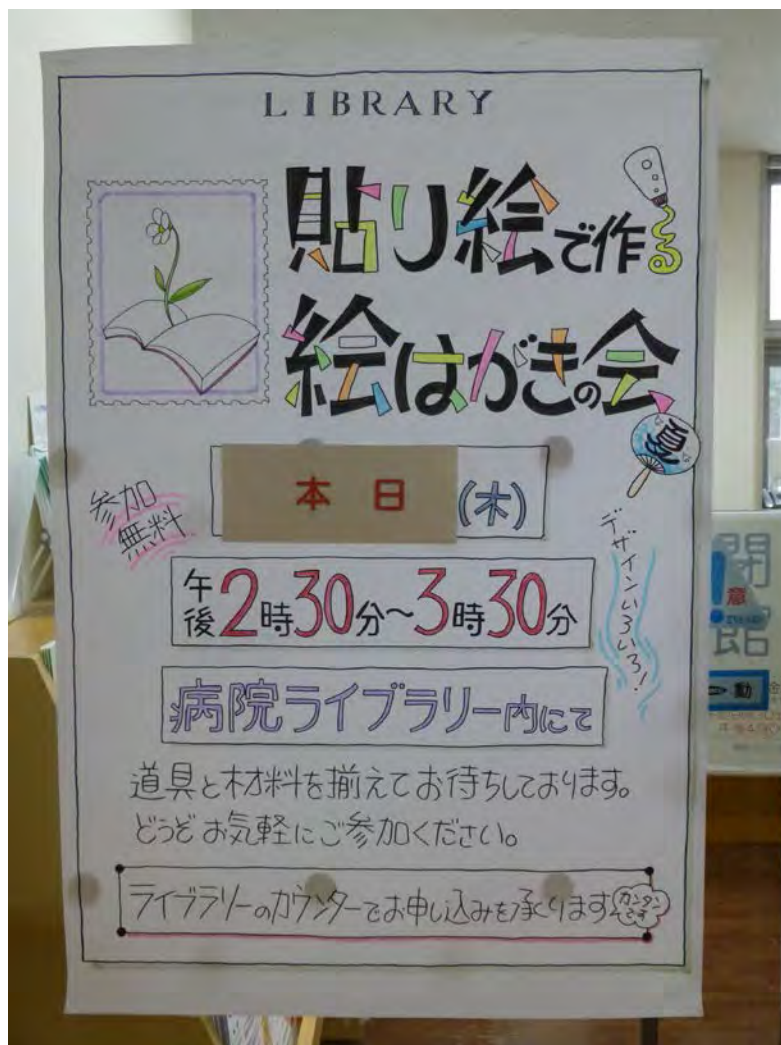 LIBRARY
貼り絵で作る
絵はがきの会
夏
本日(木)
参加
無料
デザインいろいろ!
午後2時30分~3時30分
病院ライブラリー内にて
道具と材料を揃えてお待ちしております。
どうぞお気軽にご参加ください。
ライブラリーのカウンターでお申し込みを承ります
カンタン
です
閉
館
意
動